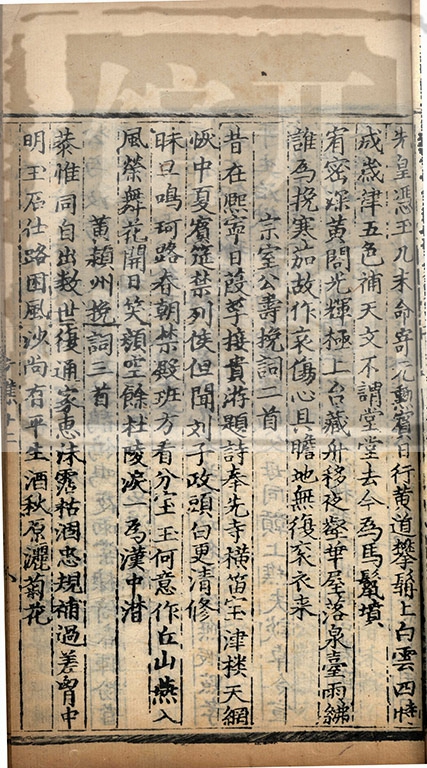 先皇憑玉几末命寄元勳賓日行黄道攀髯上白雲四時
成歲津五色補天文不謂堂堂去今爲馬鬣墳
宥密深黄問光輝極上台藏舟移夜壑華屋落泉臺雨紼
誰爲挽寒笳故作哀傷心具瞻地無復袞衣来
宗室公壽挽詞二首
昔在熙寧日葭莩接貴游題詩奉先寺横笛宝津樓天網
恢中夏賓筵禁列侯但聞刘子政頭白更清修
昧旦鳴珂路春朝禁殿班方看分宝玉何意作丘山燕入
風榮舞花開日笑顔空餘杜陵淚一爲漢中潸
黄潁州挽詞三首
恭惟同自出数世復通家惠沫霑枯涸忠規補過差胷中
明玉石仕路困風沙尚有平生酒秋原灑菊花